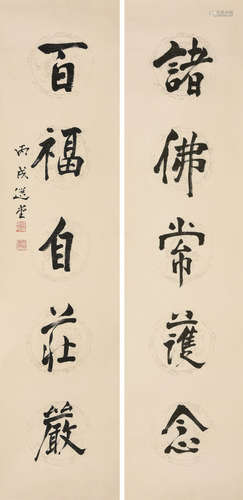 諸佛常護念
百福自莊嚴
丙戌選堂